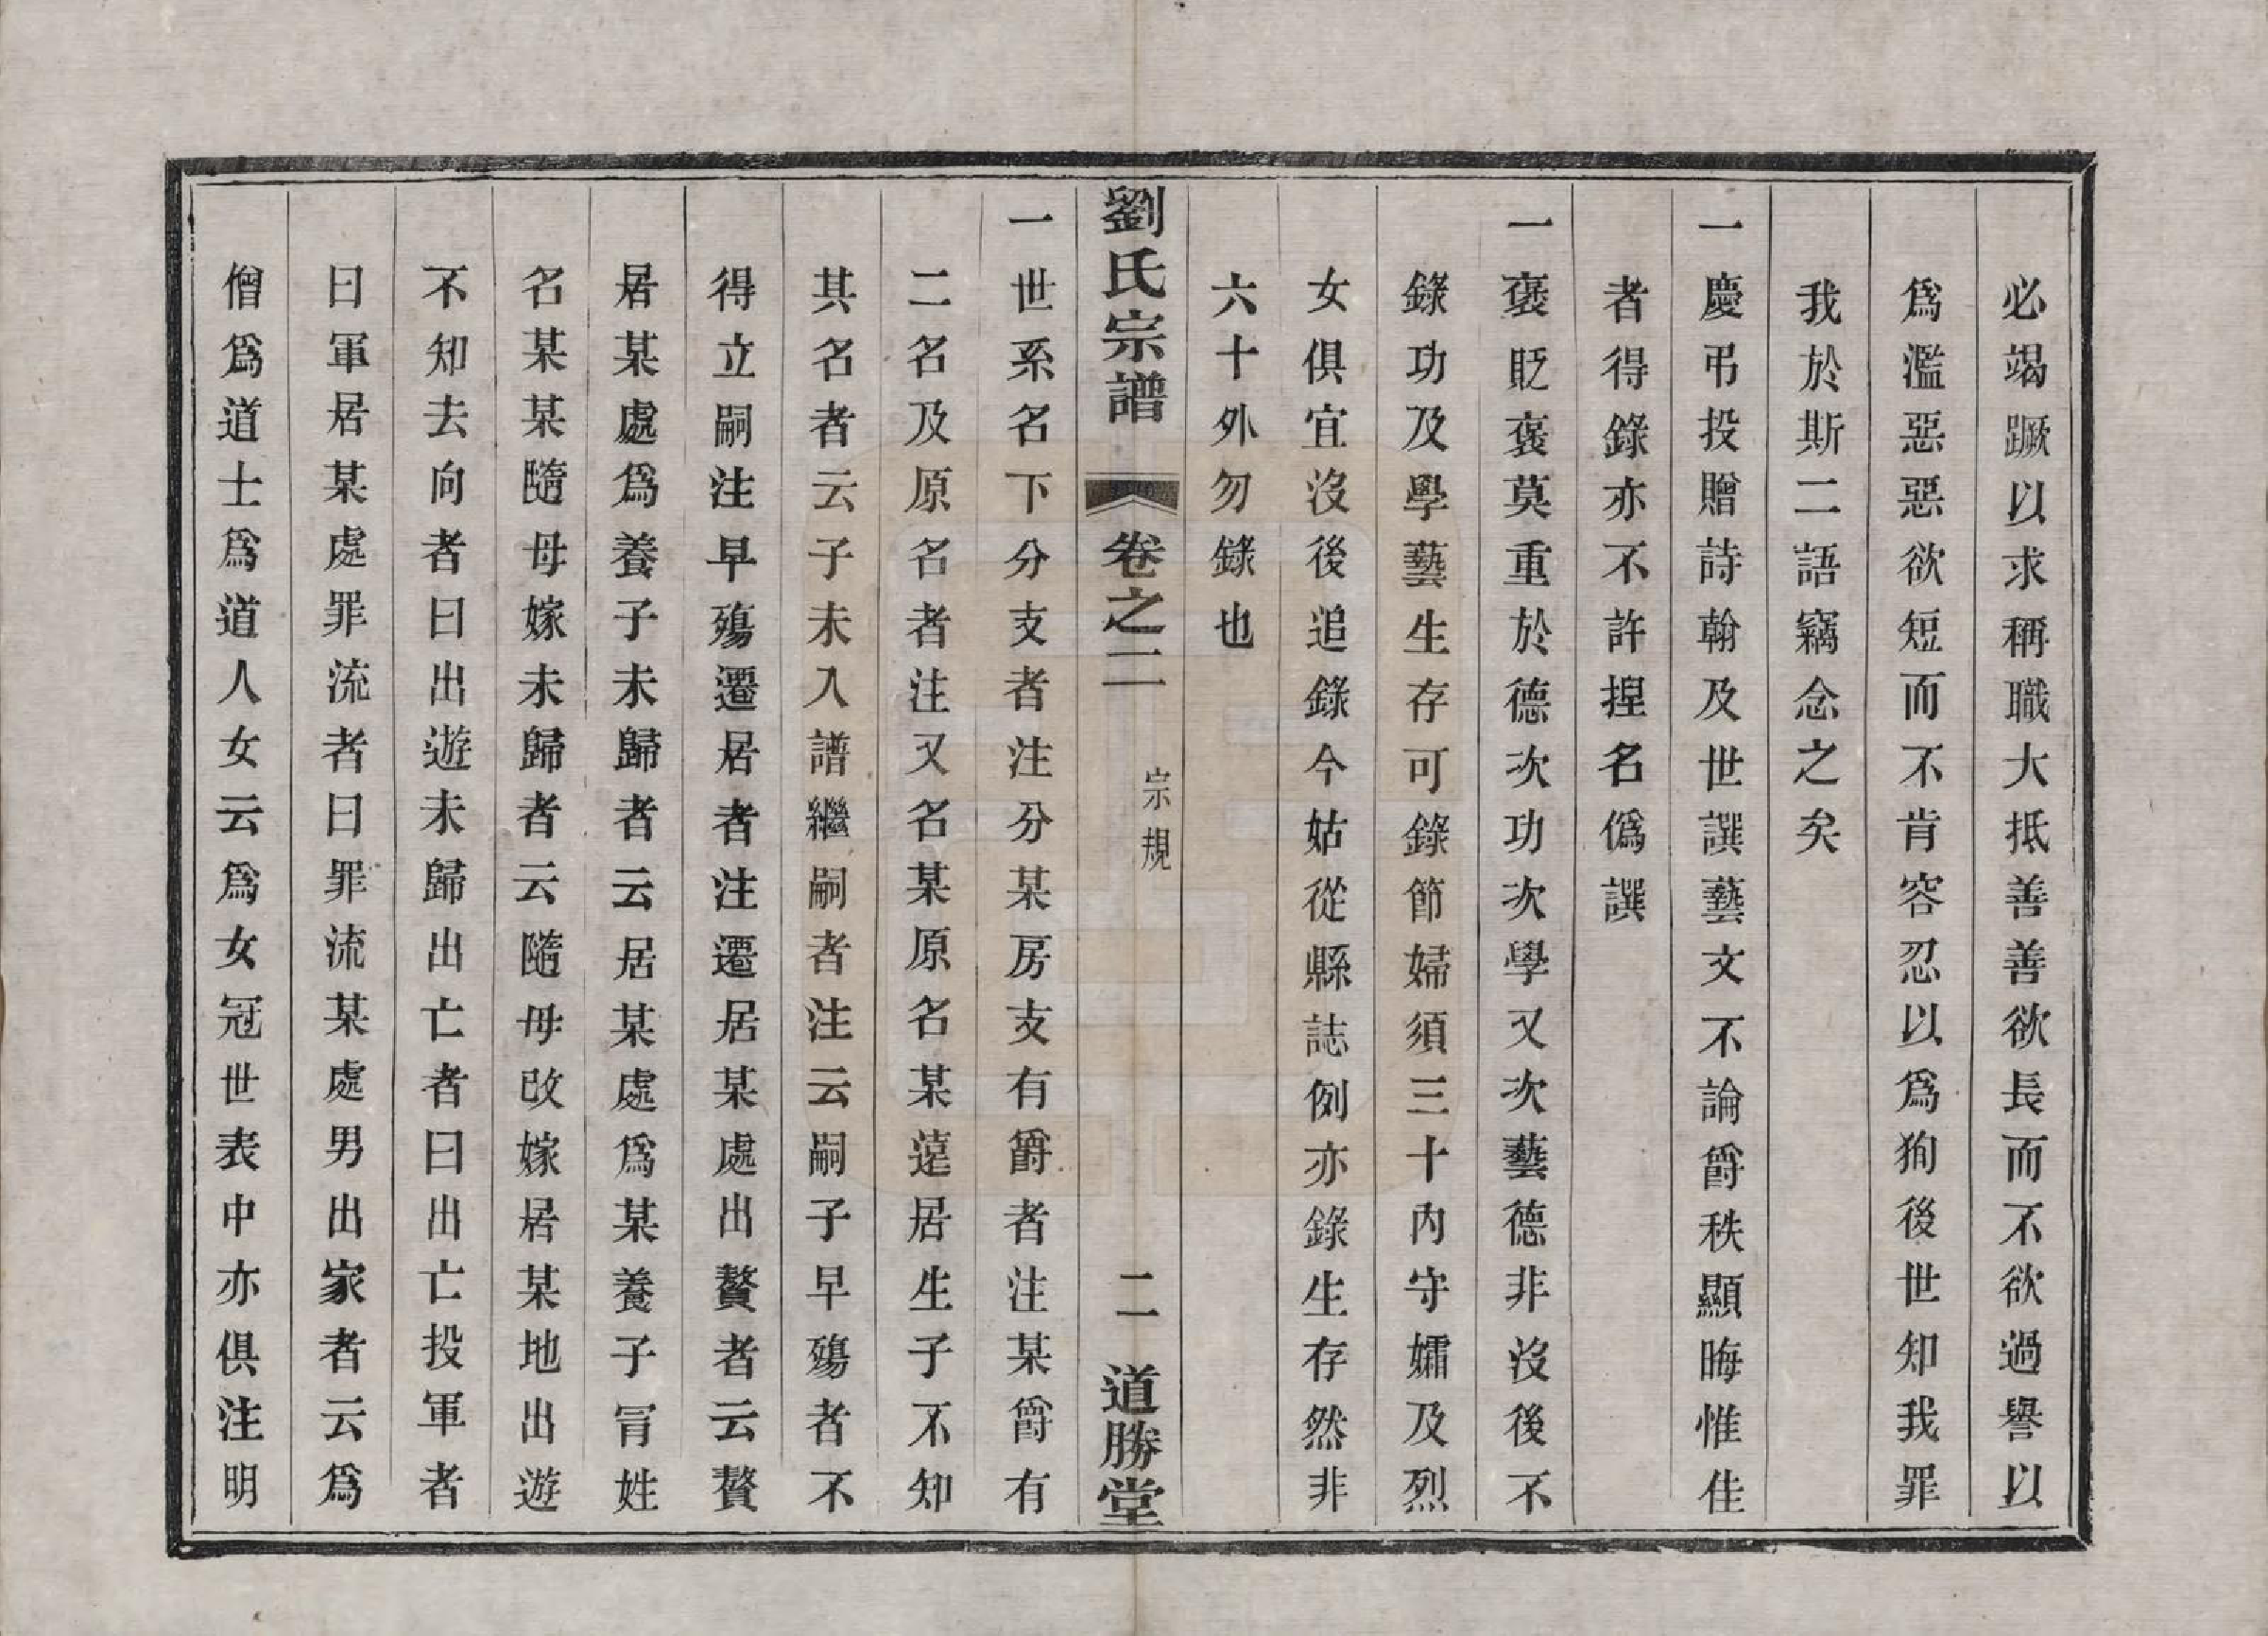 必竭蹶以求稱職大抵善善欲長而不欲過譽以
爲濫惡惡欲短而不肯容忍以爲狥後世知我罪
我於斯二語竊念之矣
一慶弔投贈詩翰及世譔藝文不論爵秩顯晦惟佳
者得錄亦不許捏名僞譔
一褒貶褒莫重於德次功次學又次藝德非沒後不
錄功及學藝生存可錄節婦須三十內守孀及烈
女俱宜沒後追錄今姑從縣誌例亦錄生存然非
六十外勿錄也
劉氏宗譜 卷之二 宗規 二 道勝堂
一世系名下分支者注分某房支有爵者注某爵有
二名及原名者注又名某原名某遠居生子不知
其名者云子未入譜繼嗣者注云嗣子早殤者不
得立嗣注早殤遷居者注遷居某處出贅者云贅
居某處爲養子未歸者云居某處爲某養子冐姓
名某某隨母嫁未歸者云隨母改嫁居某地出遊
不知去向者曰出遊未歸出亡者曰出亡投軍者
曰軍居某處罪流者曰罪流某處男出家者云爲
僧爲道士爲道人女云爲女冠世表中亦俱注明